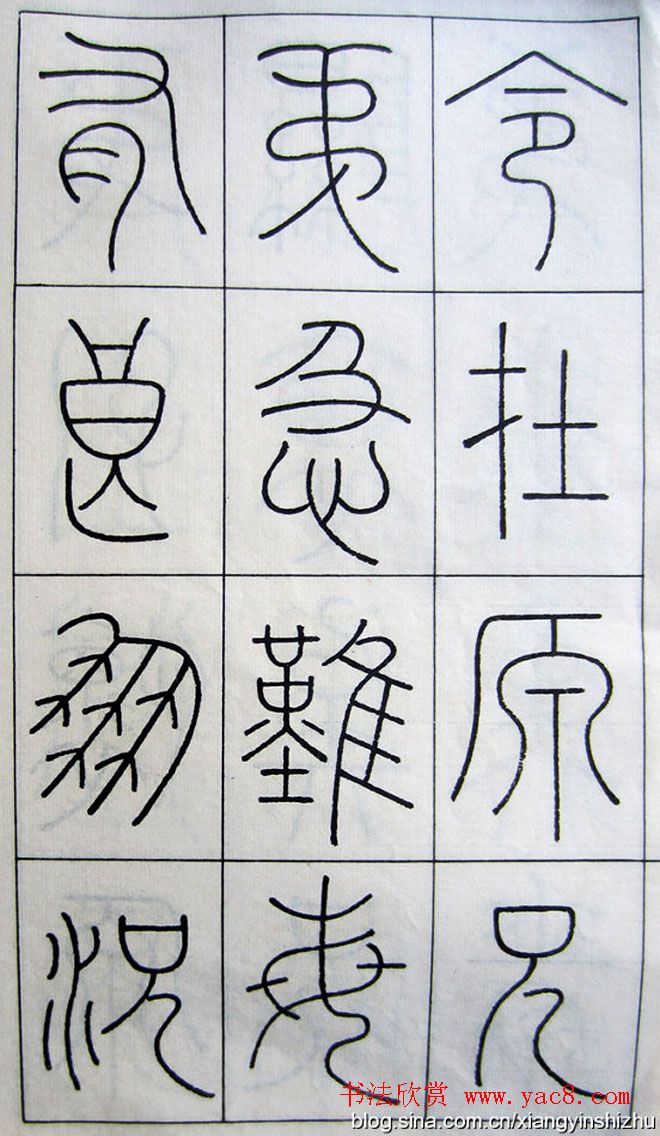 令在原兄
弟急難每
有良朋況
书法欣赏 www.yac8.com
blog.sina.com.cn/xiangyinshizhu